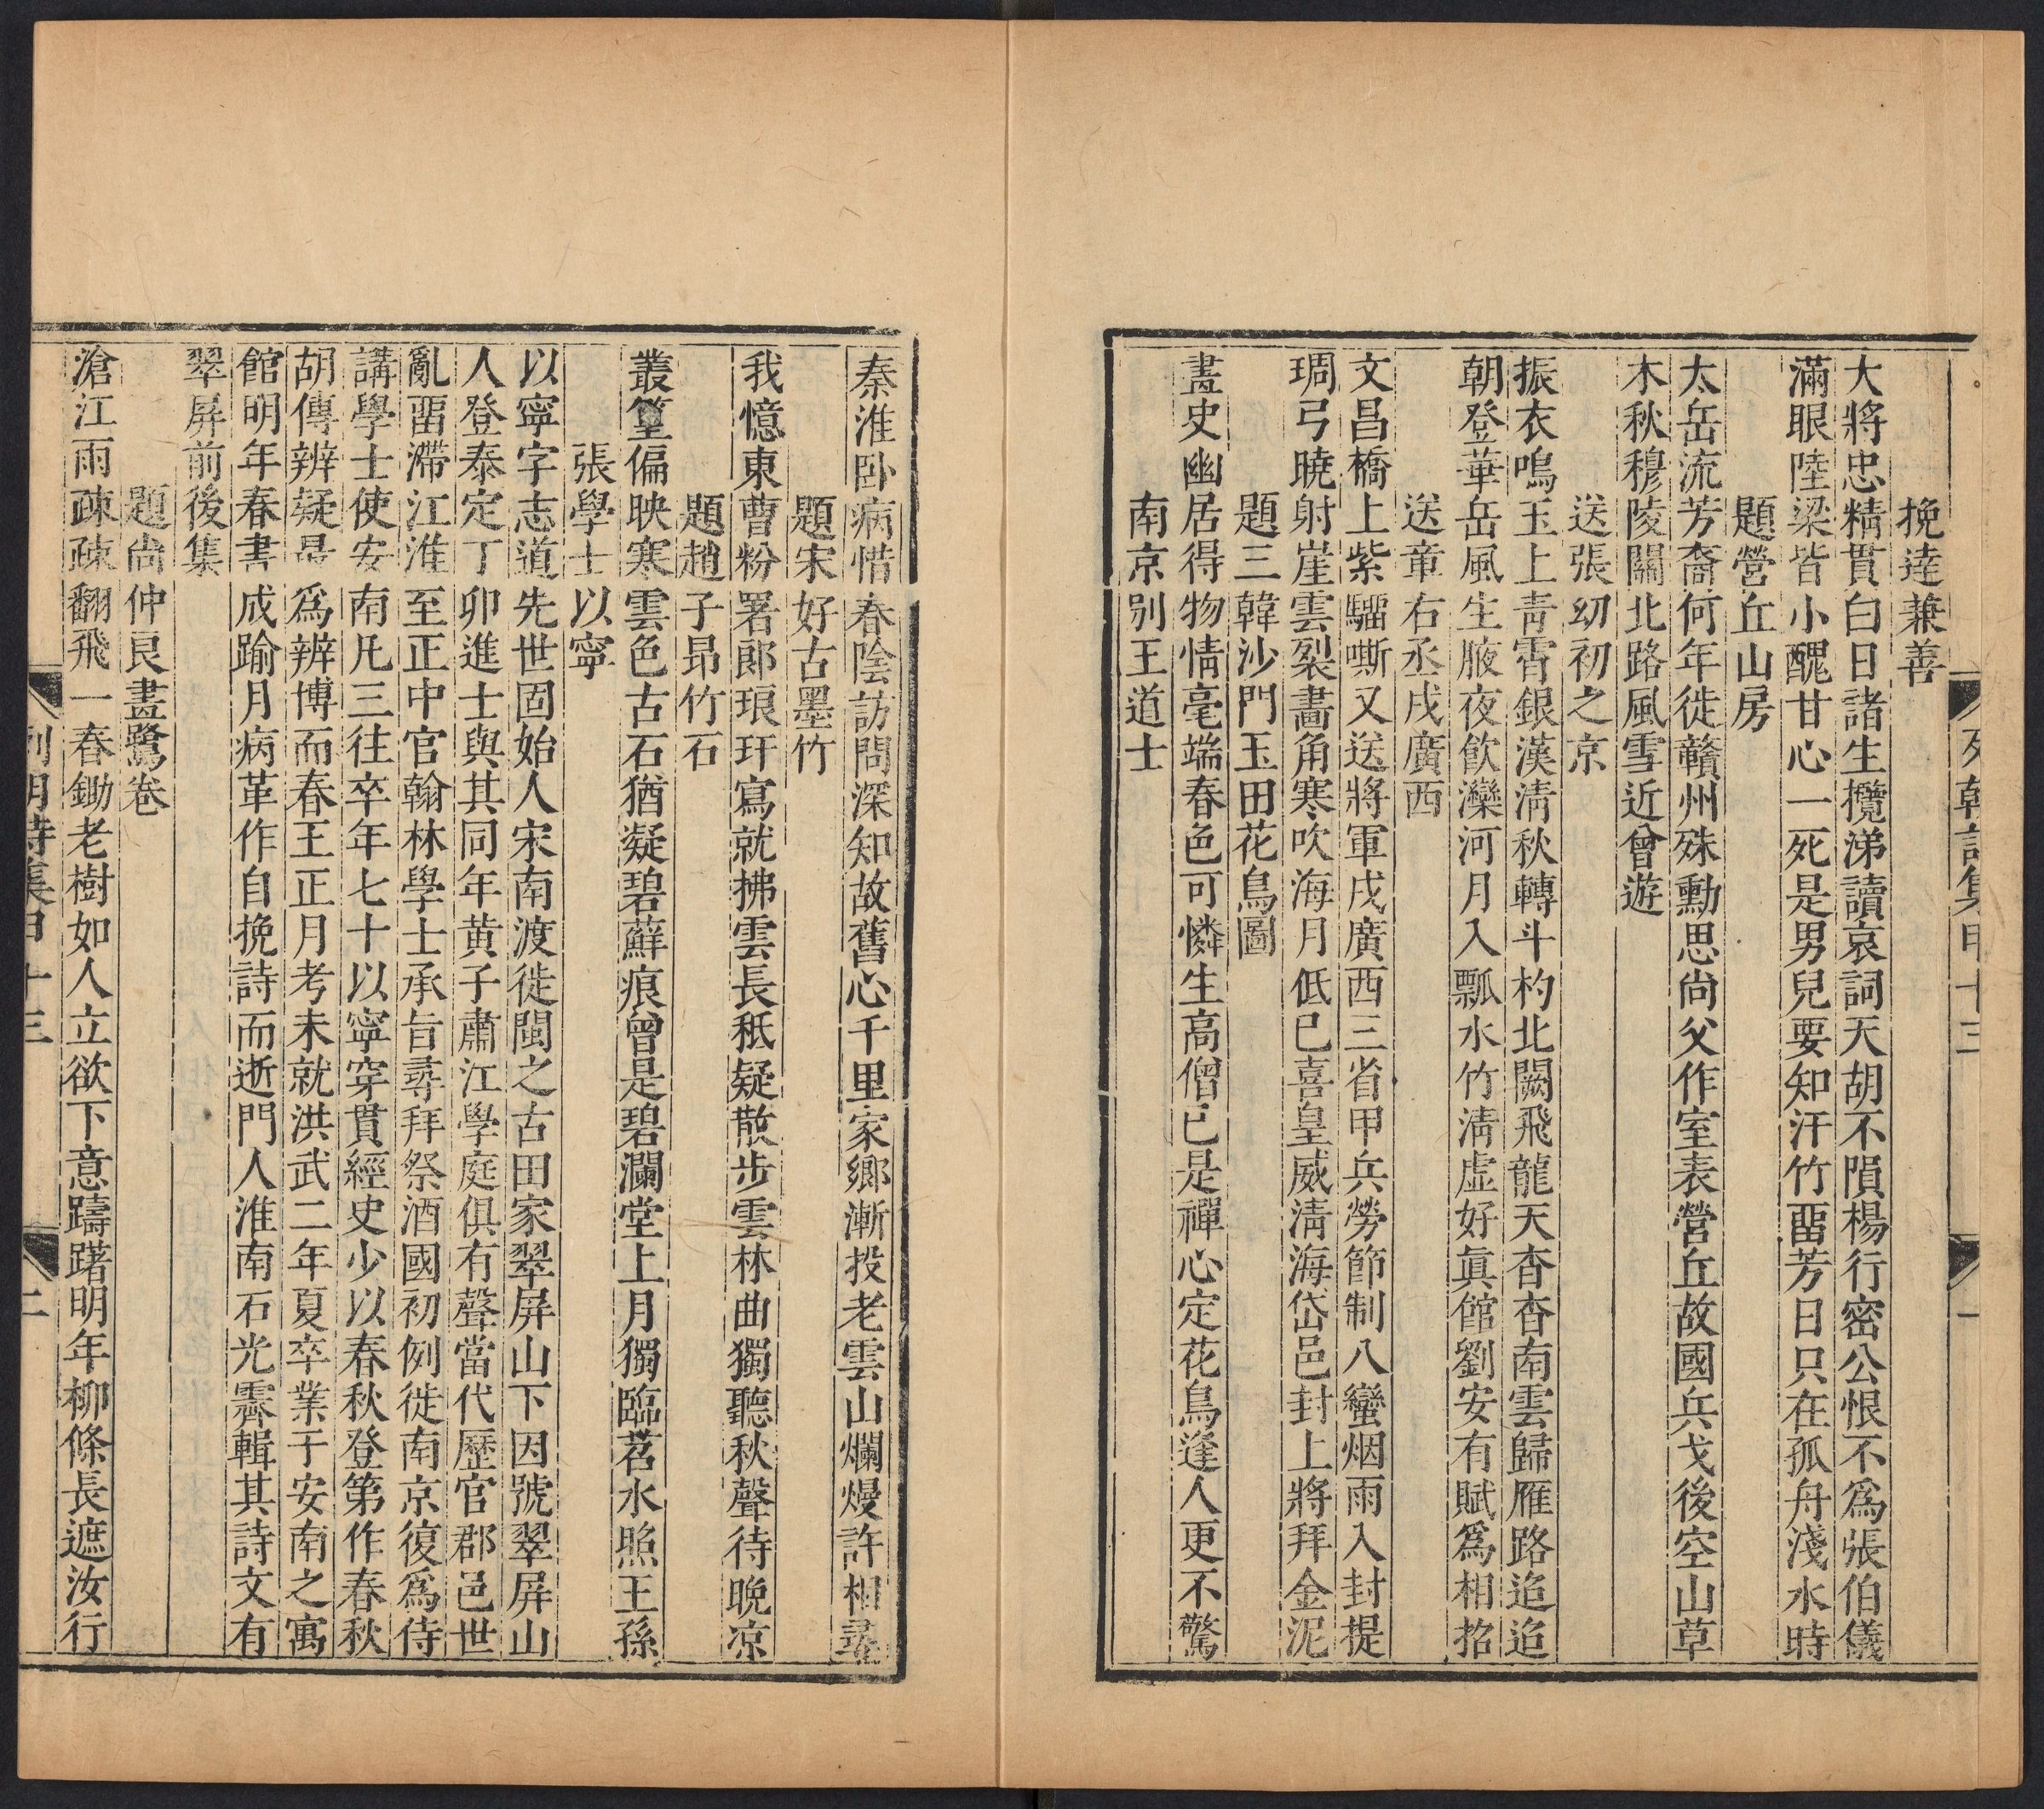 列朝詩集甲十三
一
挽達兼善
大將忠精貫白日諸生攬涕讀哀詞天胡不隕楊行密公恨不爲張伯儀
滿眼陸梁皆小醜甘心一死是男兒要知汗竹畱芳日只在孤舟淺水時
題營丘山房
太岳流芳裔何年徙贛州殊勳思尙父作室表營丘故國兵戈後空山草
木秋穆陵關北路風雪近曾遊
送張幼初之京
振衣鳴玉上靑霄銀漢淸秋轉斗杓北闕飛龍天杳杳南雲歸雁路迢迢
朝登華岳風生腋夜飮灤河月入瓢水竹淸虛好眞館劉安有賦爲相招
送章右丞戌廣西
文昌橋上紫騮嘶又送將軍戌廣西三省甲兵勞節制八蠻烟雨入封提
琱弓曉射崖雲裂畵角寒吹海月低已喜皇威淸海岱邑封上將拜金泥
題三韓沙門玉田花鳥圖
畫史幽居得物情毫端春色可憐生高僧已是禪心定花鳥逢人更不驚
南京別王道士
秦淮卧病惜春陰訪問深知故舊心千里家鄉漸投老雲山爛熳許相尋
題宋好古墨竹
我憶東曹粉署郎琅玕寫就拂雲長秪疑散步雲林曲獨聽秋聲待晚凉
題趙子昂竹石
叢篁偏映寒雲色古石猶凝碧蘚痕曾是碧瀾堂上月獨臨苕水照王孫
張學士以寧
以寧字志道先世固始人宋南渡徙閩之古田家翠屏山下因號翠屏山
人登泰定丁卯進士與其同年黃子肅江學庭俱有聲當代歷官郡邑世
亂畱滯江淮至正中官翰林學士承旨尋拜祭酒國初例徙南京復爲侍
講學士使安南凡三往卒年七十以寧穿貫經史少以春秋登第作春秋
胡傳辨疑最爲辨博而春王正月考未就洪武二年夏卒業于安南之寓
館明年春書成踰月病革作自挽詩而逝門人淮南石光霽輯其詩文有
翠屏前後集
題尙仲良畫鷺卷
滄江雨疎疎翻飛一春鋤老樹如人立欲下意躊躇明年柳條長遮汝行
列朝詩集甲十三
二